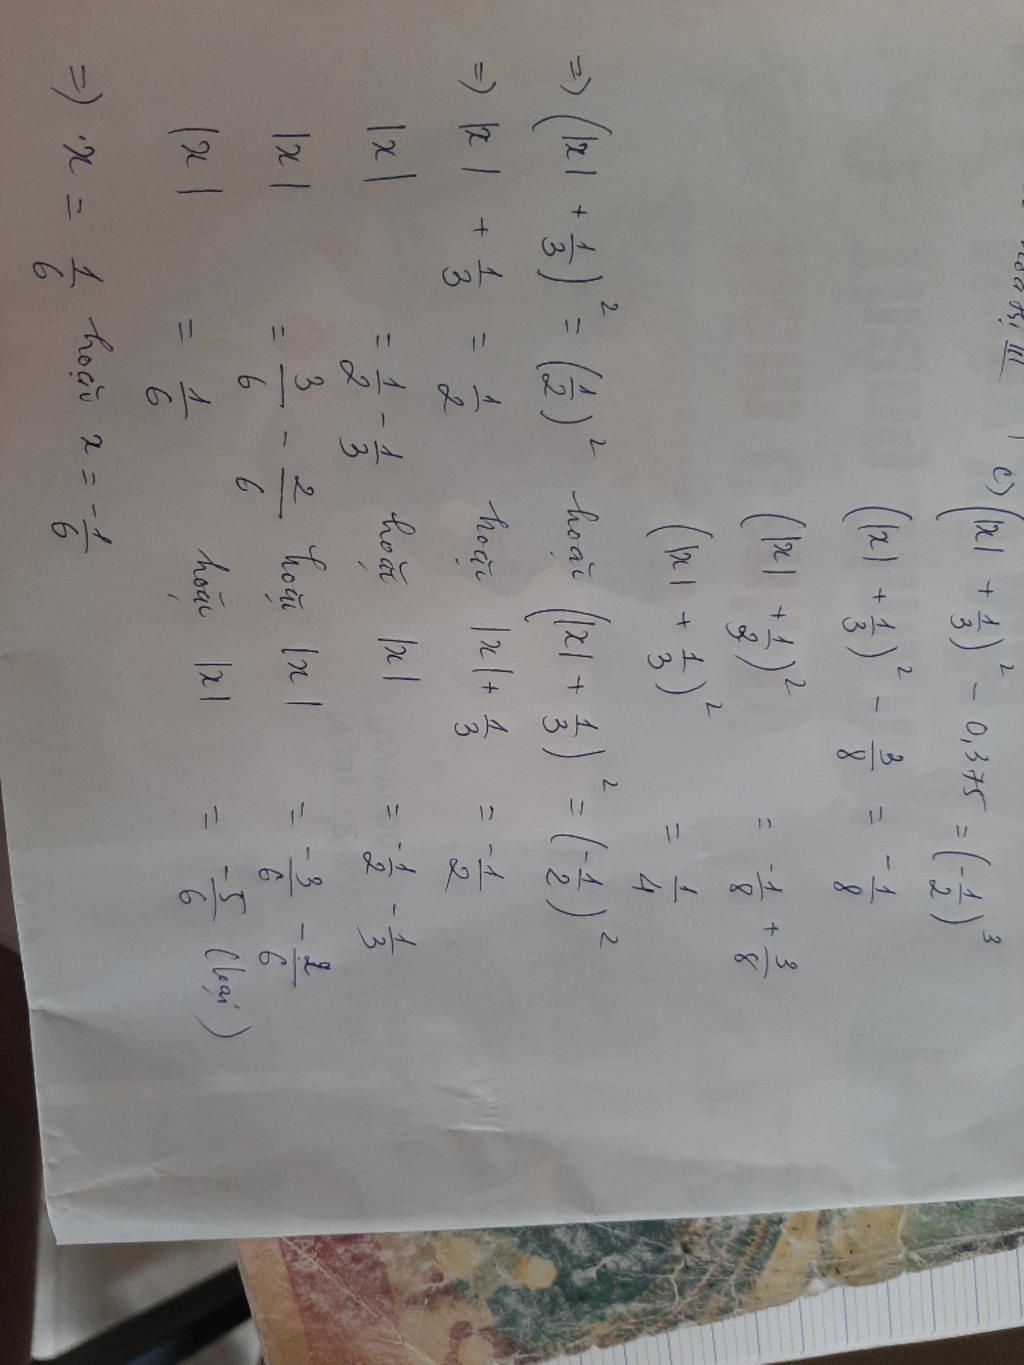 III
c) (|x| + 1/3)² - 0,375 = (-1/2)³
(|x| + 1/3)² - 3/8 = -1/8
(|x| + 1/3)² = -1/8 + 3/8
(|x| + 1/3)² = 1/4
=> (|x| + 1/3)² = (1/2)² hoặc (|x| + 1/3)² = (-1/2)²
=> |x| + 1/3 = 1/2 hoặc |x| + 1/3 = -1/2
|x| = 1/2 - 1/3 hoặc |x| = -1/2 - 1/3
|x| = 3/6 - 2/6 hoặc |x| = -3/6 - 2/6
|x| = 1/6 hoặc |x| = -5/6 (loại)
=> x = 1/6 hoặc x = -1/6